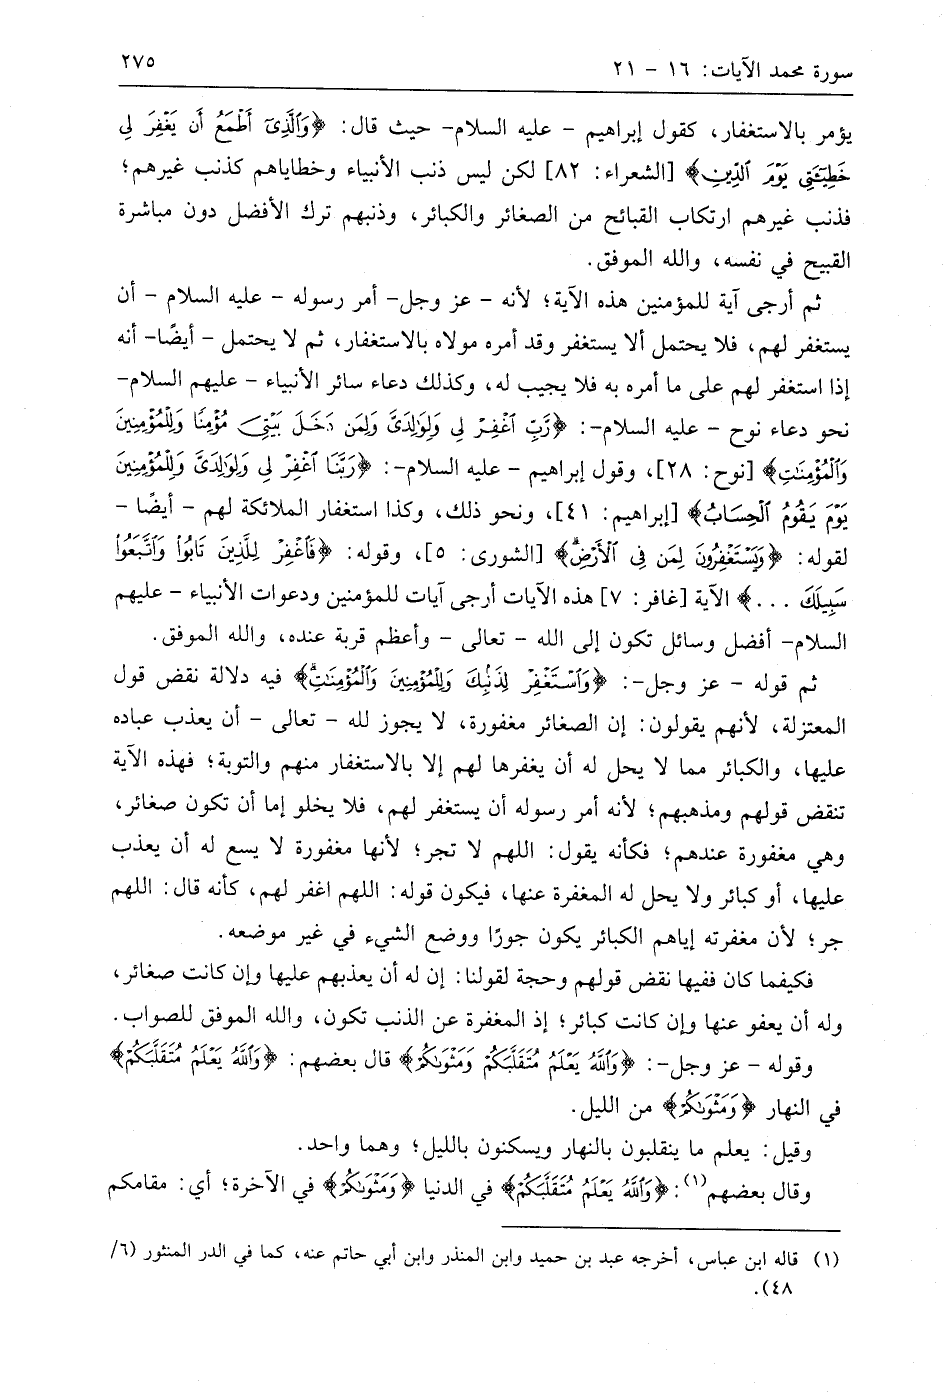 سورة محمد الآيات: ١٦ - ٢١
٢٧٥
يؤمر بالاستغفار، كقول إبراهيم - عليه السلام- حيث قال: ﴿وَٱلَّذِىٓ أَطْمَعُ أَن يَغْفِرَ لِى
خَطِيٓـَٔتِى يَوْمَ ٱلدِّينِ﴾ [الشعراء: ٨٢] لكن ليس ذنب الأنبياء وخطاياهم كذنب غيرهم؛
فذنب غيرهم ارتكاب القبائح من الصغائر والكبائر، وذنبهم ترك الأفضل دون مباشرة
القبيح في نفسه، والله الموفق.
ثم أرجى آية للمؤمنين هذه الآية؛ لأنه - عز وجل- أمر رسوله - عليه السلام - أن
يستغفر لهم، فلا يحتمل ألا يستغفر وقد أمره مولاه بالاستغفار، ثم لا يحتمل - أيضًا- أنه
إذا استغفر لهم على ما أمره به فلا يجيب له، وكذلك دعاء سائر الأنبياء - عليهم السلام-
نحو دعاء نوح - عليه السلام-: ﴿رَّبِّ ٱغْفِرْ لِى وَلِوَٰلِدَىَّ وَلِمَن دَخَلَ بَيْتِىَ مُؤْمِنًا وَلِلْمُؤْمِنِينَ
وَٱلْمُؤْمِنَٰتِ﴾ [نوح: ٢٨]، وقول إبراهيم - عليه السلام-: ﴿رَبَّنَا ٱغْفِرْ لِى وَلِوَٰلِدَىَّ وَلِلْمُؤْمِنِينَ
يَوْمَ يَقُومُ ٱلْحِسَابُ﴾ [إبراهيم: ٤١]، ونحو ذلك، وكذا استغفار الملائكة لهم - أيضًا -
لقوله: ﴿وَيَسْتَغْفِرُونَ لِمَن فِى ٱلْأَرْضِۗ﴾ [الشورى: ٥]، وقوله: ﴿فَٱغْفِرْ لِلَّذِينَ تَابُوا۟ وَٱتَّبَعُوا۟
سَبِيلَكَ ...﴾ الآية [غافر: ٧] هذه الآيات أرجى آيات للمؤمنين ودعوات الأنبياء - عليهم
السلام- أفضل وسائل تكون إلى الله - تعالى - وأعظم قربة عنده، والله الموفق.
ثم قوله - عز وجل-: ﴿وَٱسْتَغْفِرْ لِذَنۢبِكَ وَلِلْمُؤْمِنِينَ وَٱلْمُؤْمِنَٰتِۗ﴾ فيه دلالة نقض قول
المعتزلة، لأنهم يقولون: إن الصغائر مغفورة، لا يجوز لله - تعالى - أن يعذب عباده
عليها، والكبائر مما لا يحل له أن يغفرها لهم إلا بالاستغفار منهم والتوبة؛ فهذه الآية
تنقض قولهم ومذهبهم؛ لأنه أمر رسوله أن يستغفر لهم، فلا يخلو إما أن تكون صغائر،
وهي مغفورة عندهم؛ فكأنه يقول: اللهم لا تجر؛ لأنها مغفورة لا يسع له أن يعذب
عليها، أو كبائر ولا يحل له المغفرة عنها، فيكون قوله: اللهم اغفر لهم، كأنه قال: اللهم
جر؛ لأن مغفرته إياهم الكبائر يكون جورًا ووضع الشيء في غير موضعه.
فكيفما كان ففيها نقض قولهم وحجة لقولنا: إن له أن يعذبهم عليها وإن كانت صغائر،
وله أن يعفو عنها وإن كانت كبائر؛ إذ المغفرة عن الذنب تكون، والله الموفق للصواب.
وقوله - عز وجل-: ﴿وَٱللَّهُ يَعْلَمُ مُتَقَلَّبَكُمْ وَمَثْوَىٰكُمْ﴾ قال بعضهم: ﴿وَٱللَّهُ يَعْلَمُ مُتَقَلَّبَكُمْ﴾
في النهار ﴿وَمَثْوَىٰكُمْ﴾ من الليل.
وقيل: يعلم ما ينقلبون بالنهار ويسكنون بالليل؛ وهما واحد.
وقال بعضهم(١): ﴿وَٱللَّهُ يَعْلَمُ مُتَقَلَّبَكُمْ﴾ في الدنيا ﴿وَمَثْوَىٰكُمْ﴾ في الآخرة؛ أي: مقامكم
(١) قاله ابن عباس، أخرجه عبد بن حميد وابن المنذر وابن أبي حاتم عنه، كما في الدر المنثور (٦/
٤٨).